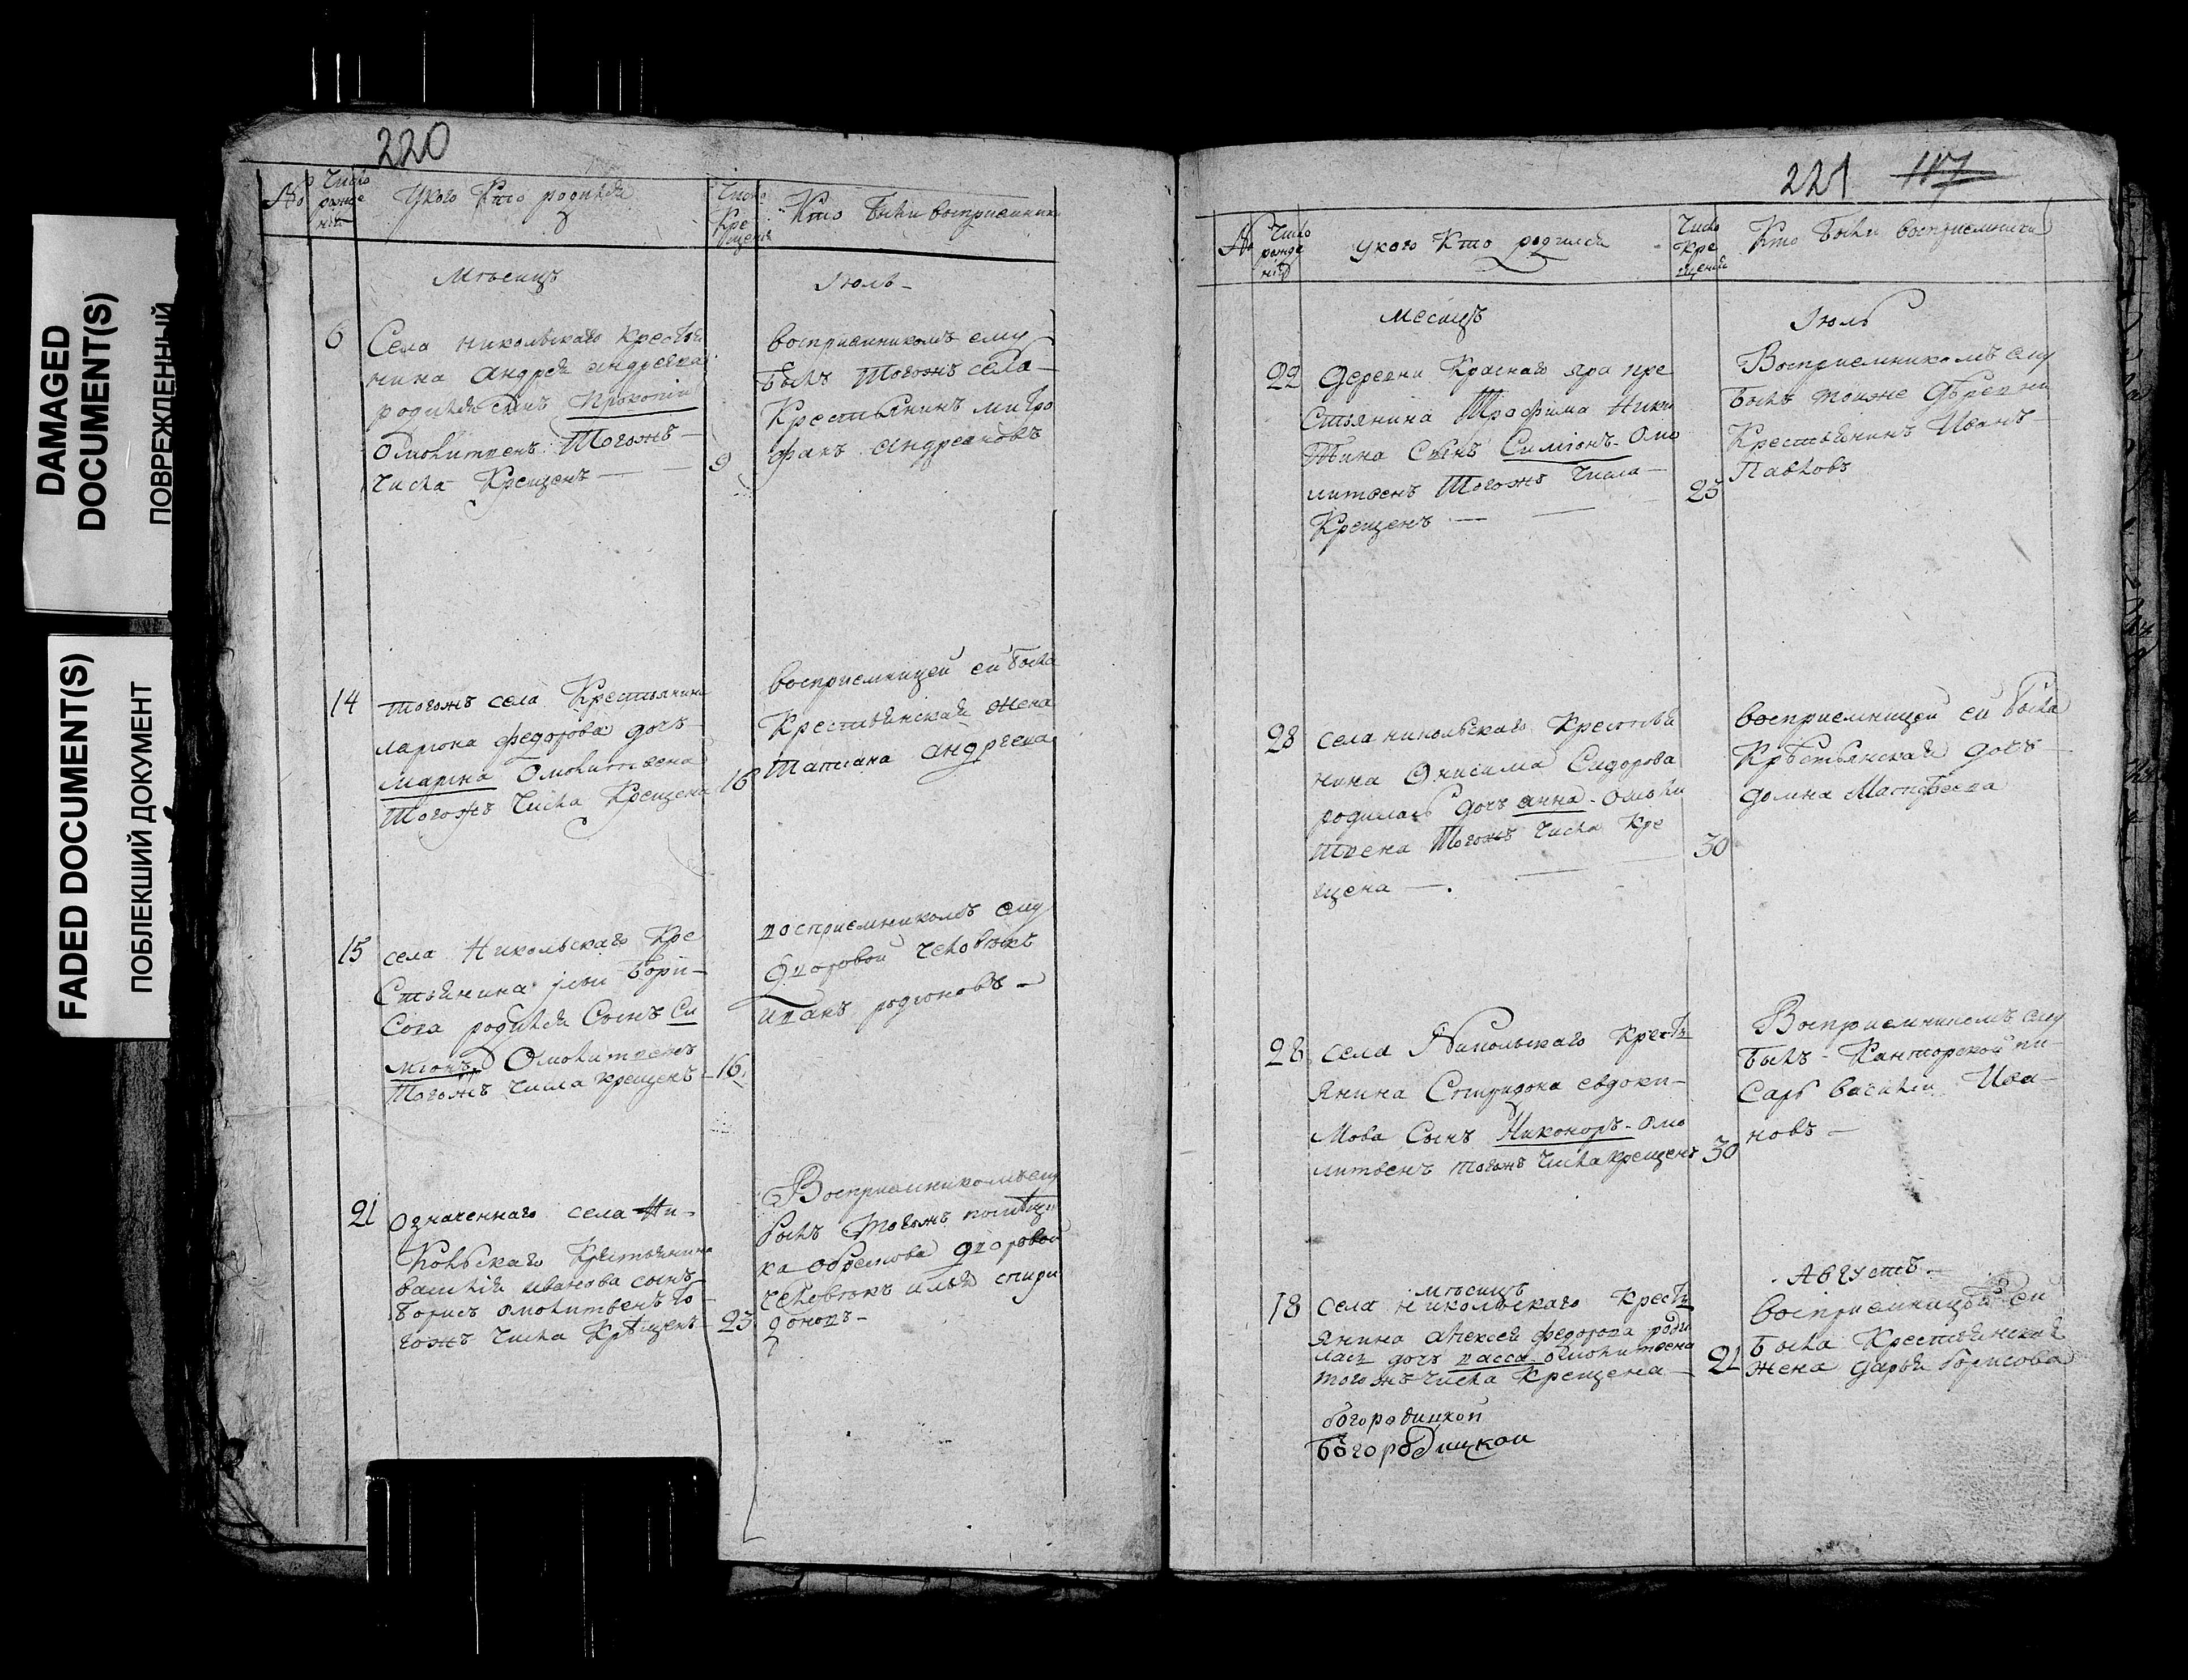 DAMAGED
DOCUMENT(S)
ПОВРЕЖДЕННЫЙ
FADED DOCUMENT(S)
ПОБЛЕКШИЙ ДОКУМЕНТ
220
№
Число
рожде
нiя
Укого Кто родился
Число
Кре
щенiя
Кто были восприемники
Мѣсяцъ
Iюль
6
Села Никольскаго Кресть
янина Андрея Андреева
родился сынъ Прокопiи
Омолитвенъ Тогожъ
числа Крещенъ
9
восприемникомъ ему
былъ Тогожъ села
Крестьянинъ митро
фанъ андреяновъ
14
тогожъ села Крестьянина
лариона федорова дочь
Марина Омолитвена
Тогожъ числа Крещена
16
восприемницей ей была
Крестьянская жена
Татиана андреева
15
села Никольскаго Кре
стьянина Борисова родился Сынъ Си
мiонъ Омолитвенъ
Тогожъ числа крещенъ
16
восприемникомъ ему
дворовой человѣкъ
иванъ родионовъ
21
Означеннаго села Ни
кольскаго Крестьянина
васился иванова сынъ
Борисъ омолитвенъ то
гожъ числа Крѣщенъ
23
Восприемникомъ ему
былъ тогожъ помѣщи
ка дворовой
человѣкъ илья спири
доновъ
221
117
№
Число
рожде
нiя
укого Кто родился
Число
Кре
щенiя
Кто были восприемники
Месяцъ
Iюль
22
Деревни Краснаго яра кре
стьянина Трофима Ники
тина Сынъ Симiонъ Омо
литвенъ Тогожъ числа
Крещенъ
25
Восприемникомъ ему
былъ тоиже дѣревни
Крестьянинъ Иванъ
Павловъ
28
села никольскаго Крестья
нина Онисима Сидорова
родилась дочь анна Омоли
твена Тогожъ числа Кре
щена
30
восприемницей ей была
Крѣстьянская дочь
домна Матфеева
28
села Никольскаго Кресть
янина Спиридона евдоки
мова Сынъ Никоноръ омо
литвенъ тогожъ числа крещенъ
30
Восприемникомъ ему
былъ Канторской пи
сарь василеи Ива
новъ
мѣсяцъ
Августъ
18
села никольскаго Кресть
янина алексея федорова роди
лась дочь васса омолитвена
тогожъ числа Крещена
21
восприемницей ей
была Крестьянская
жена дарья борисова
богородицкой
Богородицкои